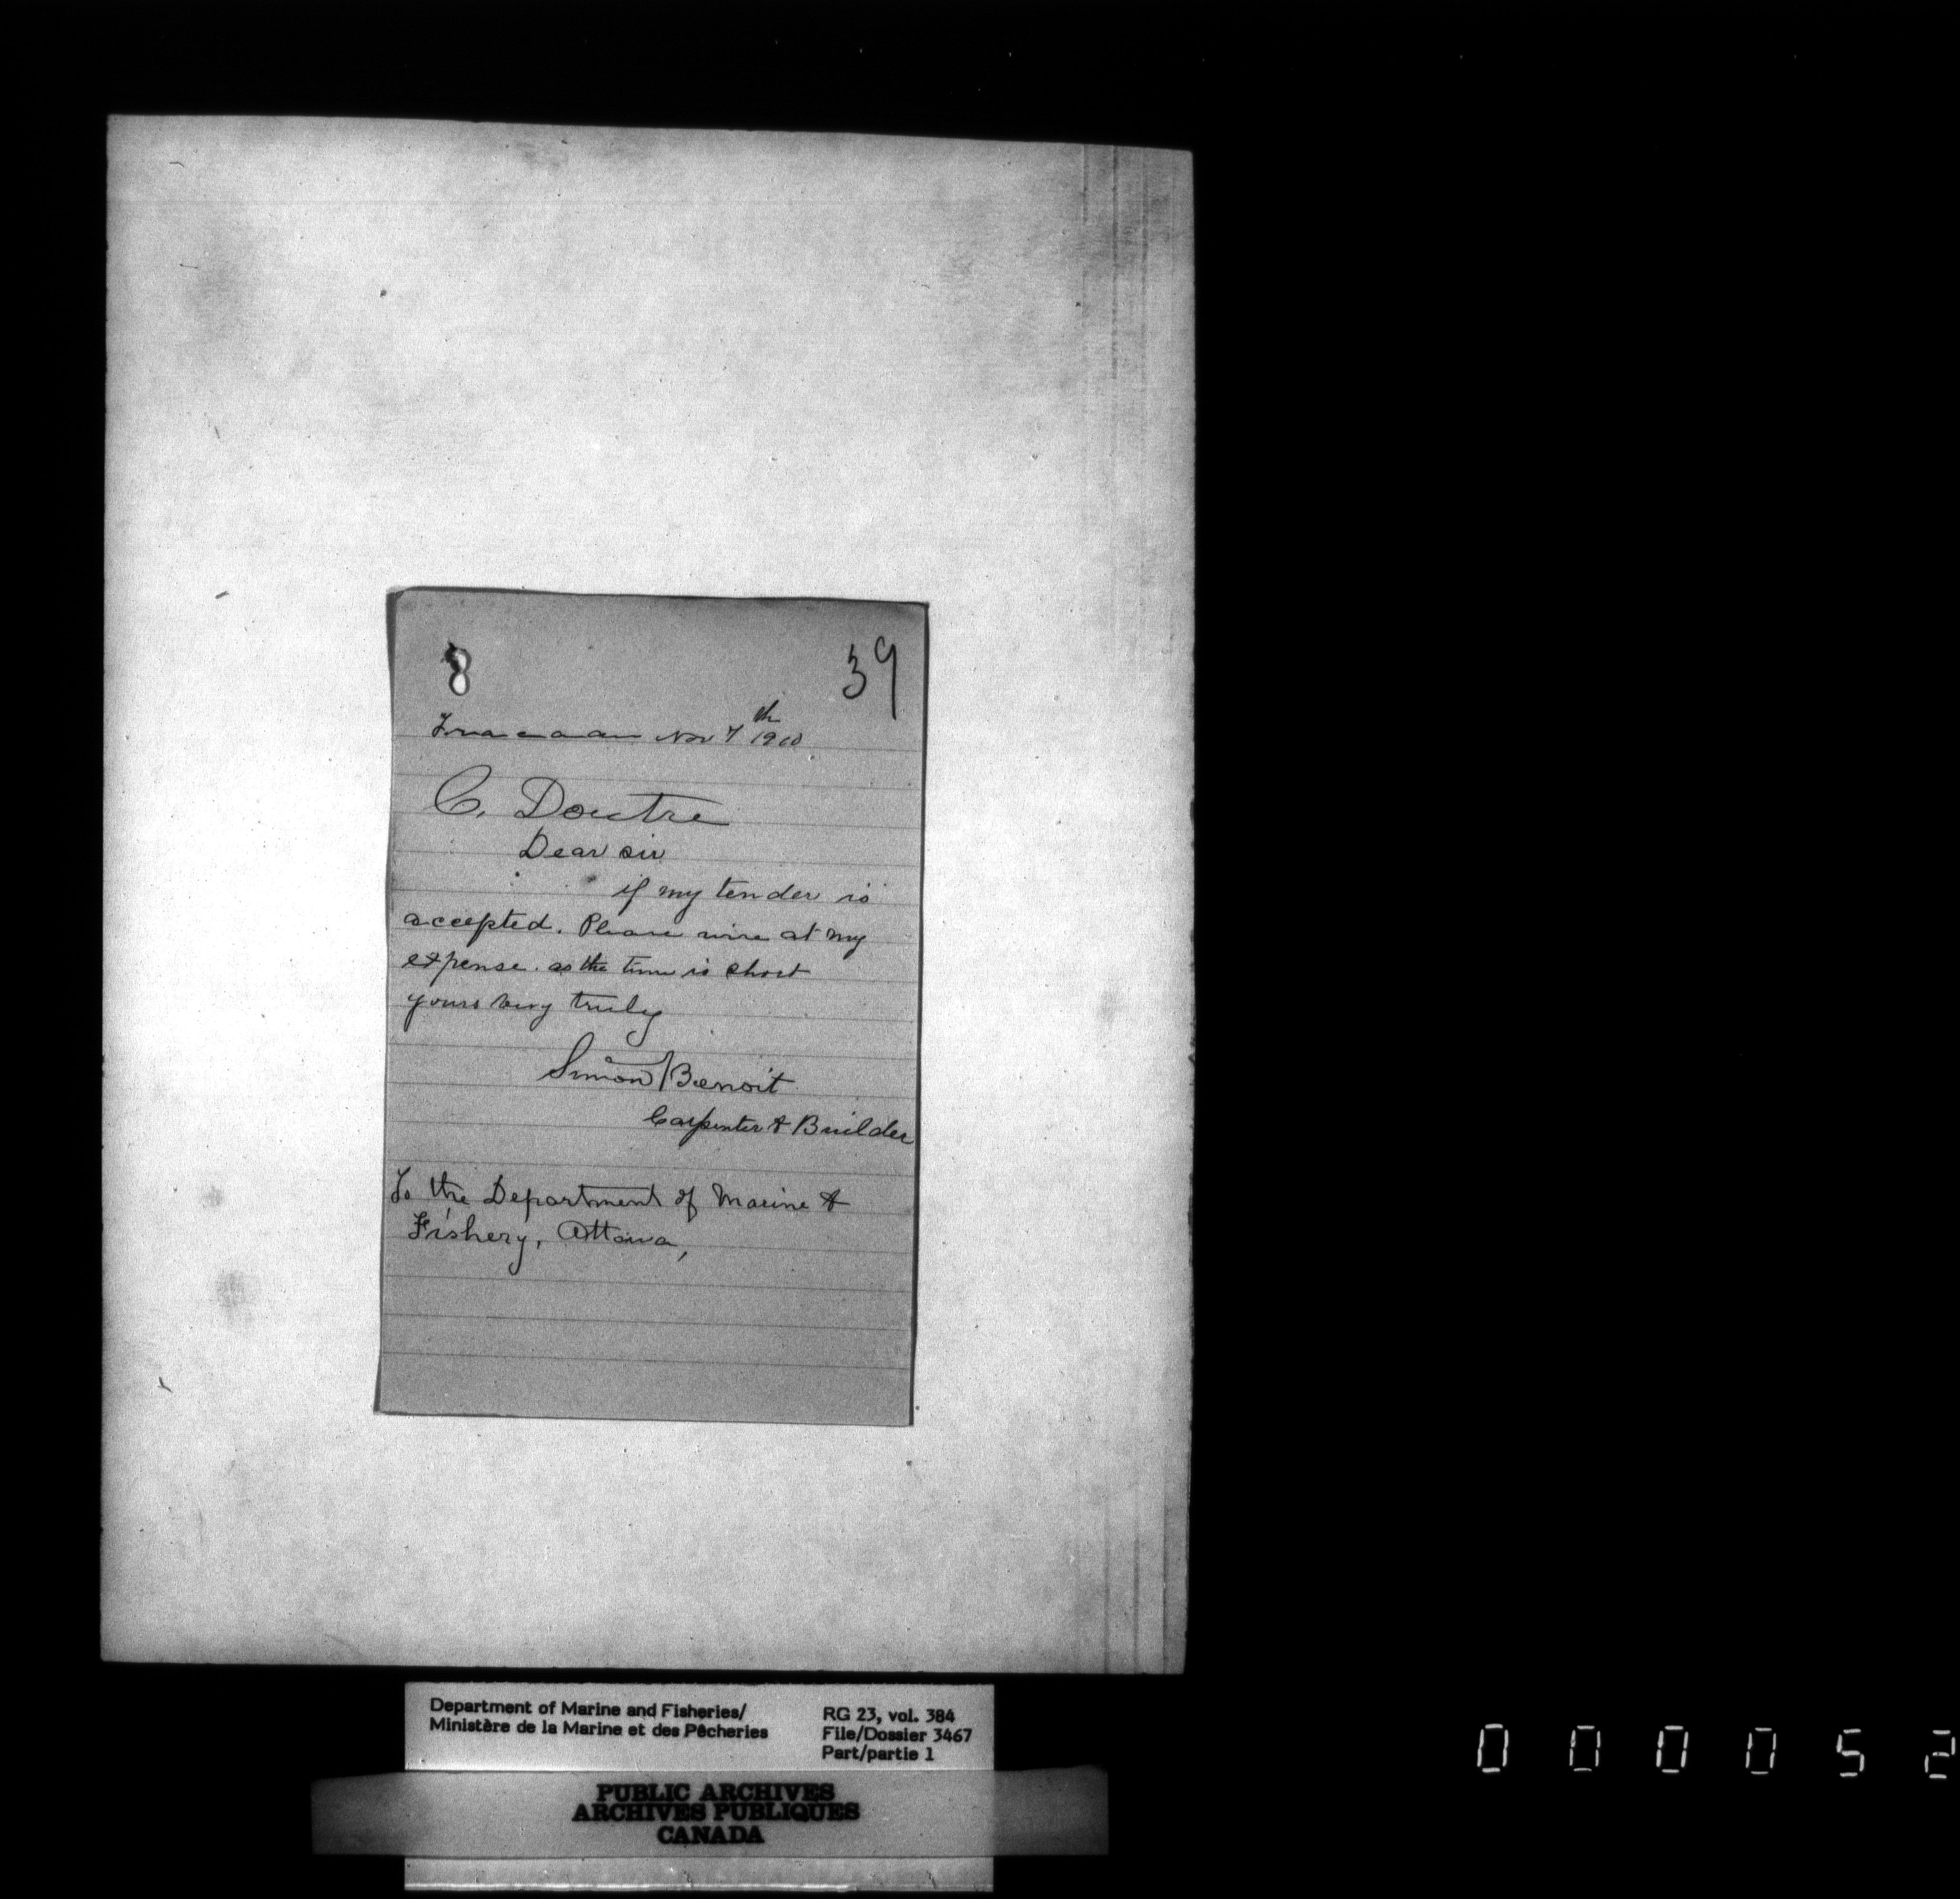 39
Tracadie Nov 7th 1910
C. Doutre
Dear sir
if my tender is
accepted. Please wire at my
expense. as the time is short
yours very truly
Simon Benoit
Carpenter & Builder
To the Department of Marine &
Fishery, Ottawa,
Department of Marine and Fisheries/
Ministère de la Marine et des Pêcheries
RG 23, vol. 384
File/Dossier 3467
Part/partie 1
PUBLIC ARCHIVES
ARCHIVES PUBLIQUES
CANADA
0 0 0 0 5 2